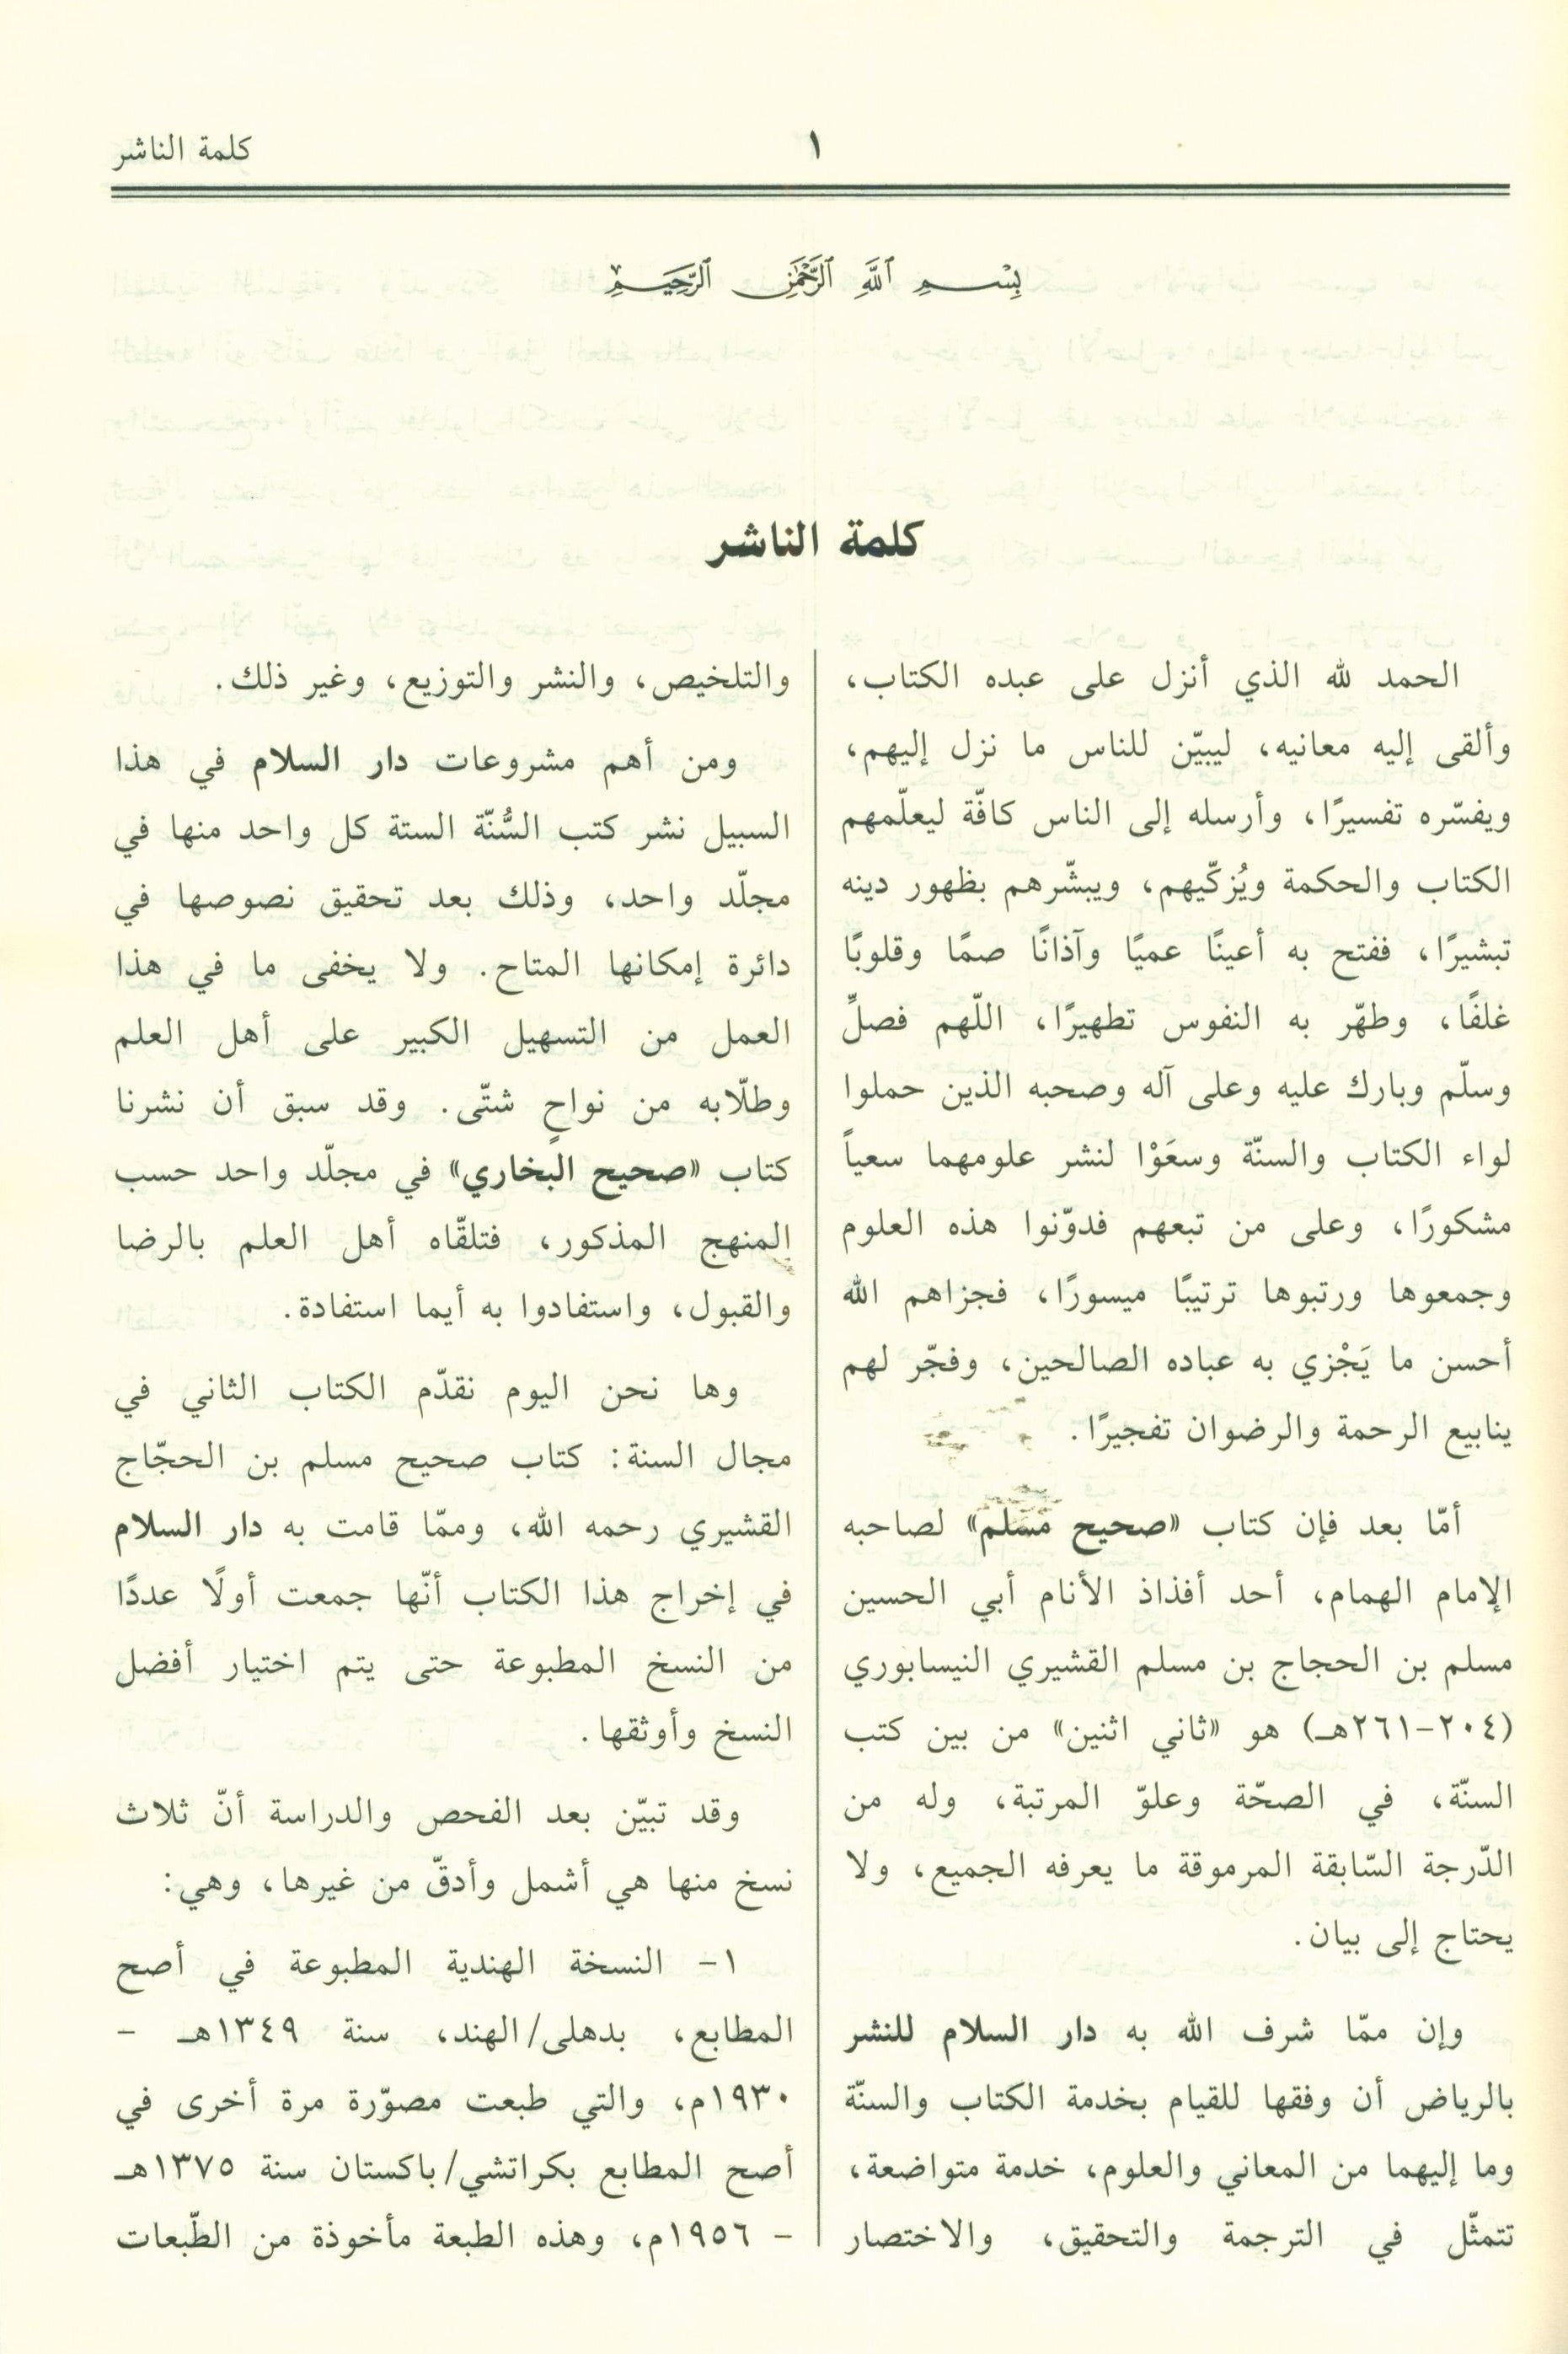 كلمة الناشر
١
بِسْمِ ٱللَّهِ ٱلرَّحْمَٰنِ ٱلرَّحِيمِ
كلمة الناشر
الحمد لله الذي أنزل على عبده الكتاب،
وألقى إليه معانيه، ليبيّن للناس ما نزل إليهم،
ويفسّره تفسيرًا، وأرسله إلى الناس كافّة ليعلّمهم
الكتاب والحكمة ويُزكّيهم، ويبشّرهم بظهور دينه
تبشيرًا، ففتح به أعينًا عميًا وآذانًا صمًا وقلوبًا
غلفًا، وطهّر به النفوس تطهيرًا، اللّهم فصلِّ
وسلّم وبارك عليه وعلى آله وصحبه الذين حملوا
لواء الكتاب والسنّة وسعَوْا لنشر علومهما سعياً
مشكورًا، وعلى من تبعهم فدوّنوا هذه العلوم
وجمعوها ورتبوها ترتيبًا ميسورًا، فجزاهم الله
أحسن ما يَجْزي به عباده الصالحين، وفجّر لهم
ينابيع الرحمة والرضوان تفجيرًا.
أمّا بعد فإن كتاب «صحيح مسلم» لصاحبه
الإمام الهمام، أحد أفذاذ الأنام أبي الحسين
مسلم بن الحجاج بن مسلم القشيري النيسابوري
(٢٠٤-٢٦١هـ) هو «ثاني اثنين» من بين كتب
السنّة، في الصحّة وعلوّ المرتبة، وله من
الدّرجة السّابقة المرموقة ما يعرفه الجميع، ولا
يحتاج إلى بيان.
وإن ممّا شرف الله به دار السلام للنشر
بالرياض أن وفقها للقيام بخدمة الكتاب والسنّة
وما إليهما من المعاني والعلوم، خدمة متواضعة،
تتمثّل في الترجمة والتحقيق، والاختصار
والتلخيص، والنشر والتوزيع، وغير ذلك.
ومن أهم مشروعات دار السلام في هذا
السبيل نشر كتب السُّنّة الستة كل واحد منها في
مجلّد واحد، وذلك بعد تحقيق نصوصها في
دائرة إمكانها المتاح. ولا يخفى ما في هذا
العمل من التسهيل الكبير على أهل العلم
وطلّابه من نواحٍ شتّى. وقد سبق أن نشرنا
كتاب «صحيح البخاري» في مجلّد واحد حسب
المنهج المذكور، فتلقّاه أهل العلم بالرضا
والقبول، واستفادوا به أيما استفادة.
وها نحن اليوم نقدّم الكتاب الثاني في
مجال السنة: كتاب صحيح مسلم بن الحجّاج
القشيري رحمه الله، وممّا قامت به دار السلام
في إخراج هذا الكتاب أنّها جمعت أولًا عددًا
من النسخ المطبوعة حتى يتم اختيار أفضل
النسخ وأوثقها.
وقد تبيّن بعد الفحص والدراسة أنّ ثلاث
نسخ منها هي أشمل وأدقّ من غيرها، وهي:
١- النسخة الهندية المطبوعة في أصح
المطابع، بدهلى/الهند، سنة ١٣٤٩هـ -
١٩٣٠م، والتي طبعت مصوّرة مرة أخرى في
أصح المطابع بكراتشي/باكستان سنة ١٣٧٥هـ
- ١٩٥٦م، وهذه الطبعة مأخوذة من الطّبعات